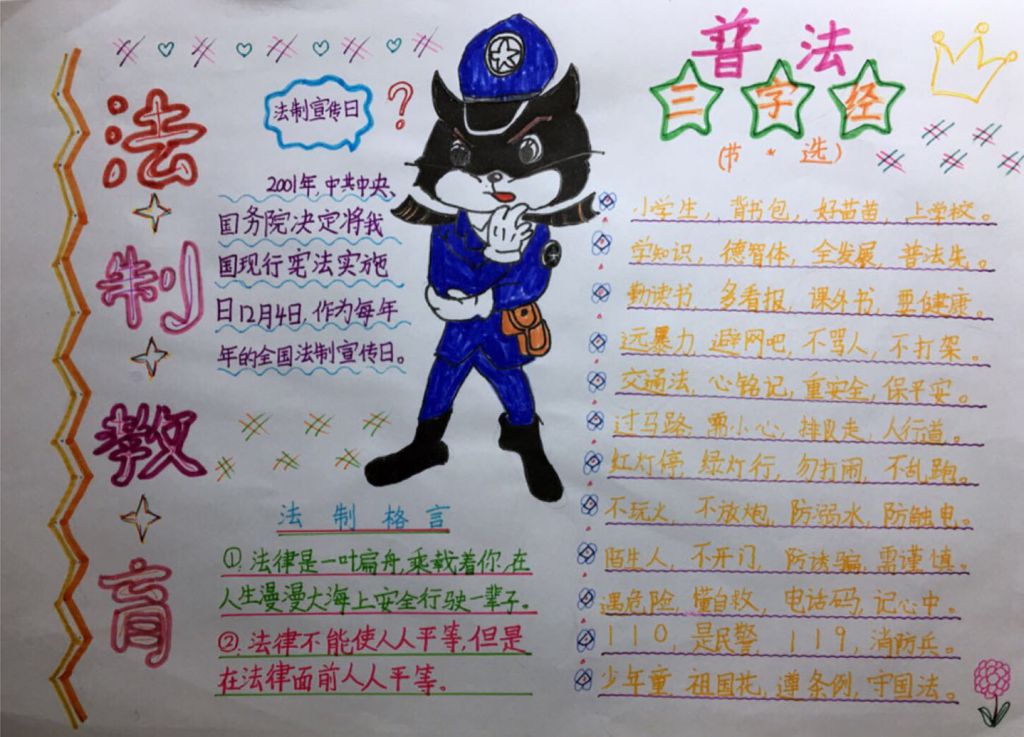 法制教育
法制宣传日
?
2001年,中共中央、
国务院决定将我
国现行宪法实施
日12月4日,作为每年
年的全国法制宣传日。
法制格言
①.法律是一叶扁舟,乘载着你,在
人生漫漫大海上安全行驶一辈子。
②.法律不能使人人平等,但是
在法律面前人人平等。
普法
三字经
(节·选)
小学生,背书包,好苗苗,上学校。
学知识,德智体,全发展,普法先。
勤读书,多看报,课外书,要健康。
远暴力,避网吧,不骂人,不打架。
交通法,心铭记,重安全,保平安。
过马路,需小心,排队走,人行道。
红灯停,绿灯行,勿打闹,不乱跑。
不玩火,不放炮,防溺水,防触电。
陌生人,不开门,防诱骗,需谨慎。
遇危险,懂自救,电话码,记心中。
110,是民警,119,消防兵。
少年童,祖国花,遵条例,守国法。